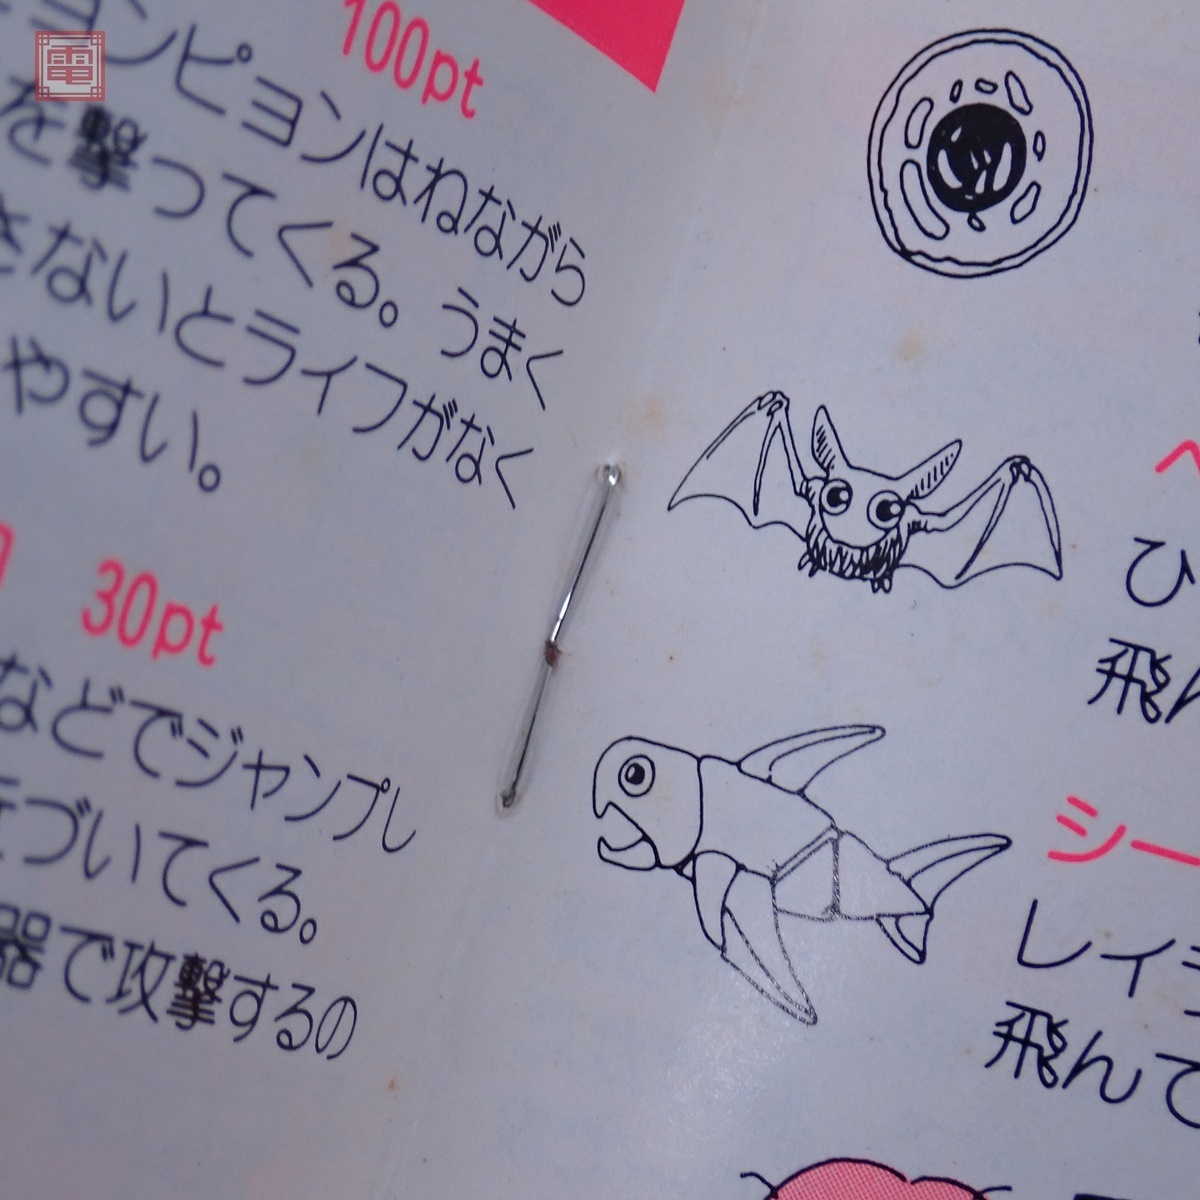 電
100pt
ヨンピヨンはねながら
を撃ってくる。うまく
きないとライフがなく
やすい。
30pt
などでジャンプし
づいてくる。
器で攻撃するの
ひ
飛ん
シー
レイ
飛んで